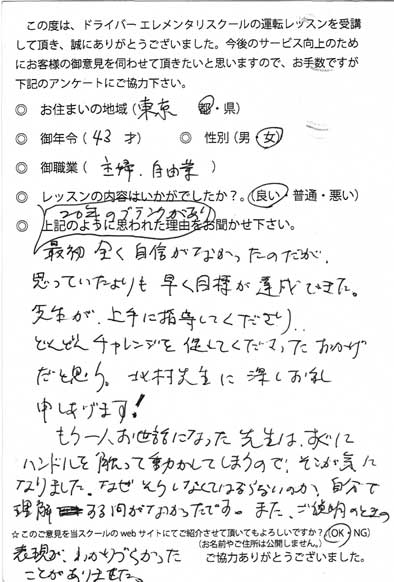 この度は、ドライバー エレメンタリスクールの運転レッスンを受講
して頂き、誠にありがとうございました。今後のサービス向上のため
にお客様の御意見を伺わせて頂きたいと思いますので、お手数ですが
下記のアンケートにご協力下さい。
◎ お住まいの地域（東京 都・県）
◎ 御年令（43 才） ◎ 性別（男・女）
◎ 御職業（主婦、自由業）
◎ レッスンの内容はいかがでしたか？。（良い・普通・悪い）
20年のブランクがあり
◎ 上記のように思われた理由をお聞かせ下さい。
最初 全く自信がなかったのだが、
思っていたよりも早く目標が達成できた。
先生が、上手に指導してくださり、
どんどんチャレンジを促してくださったおかげ
だと思う。北村先生に深くお礼
申しあげます!
もう一人お世話になった先生は、すぐに
ハンドルを触って動かしてしまうので、そこが気に
なりました。なぜそうしなくてはならないのか、自分で
理解する間がなかったです。また、ご説明のときの
☆このご意見を当スクールのwebサイトにてご紹介させて頂いてもよろしいですか？（OK・NG）
（お名前やご住所は公開しません。）
表現が、わかりづらかった
ご協力ありがとうございました。
ことがありました。